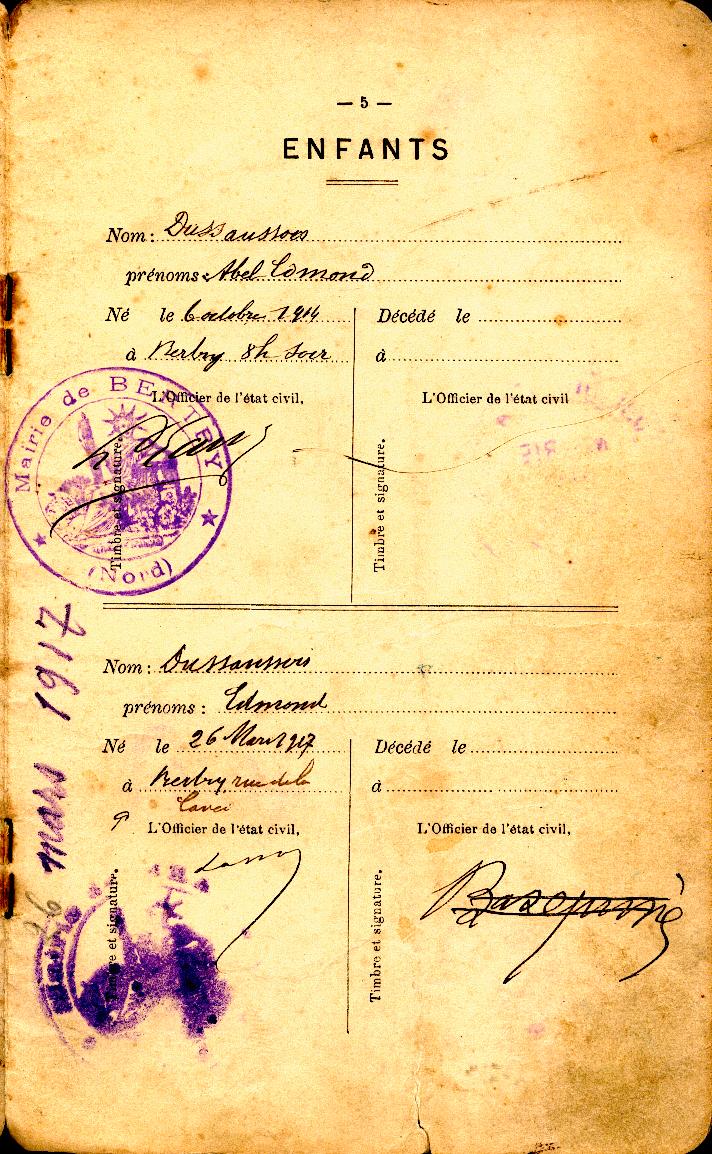 — 5 —
ENFANTS
Nom : Dussaussois
prénoms : Abel Edmond
Né le 6 octobre 1914
Décédé le
à Bertry 8h soir
à
L'Officier de l'état civil,
L'Officier de l'état civil
Timbre et signature.
Timbre et signature.
Mairie de BERTRY
(Nord)
Nom : Dussaussois
prénoms : Edmond
Né le 26 Mars 1917
Décédé le
à Bertry rue de la
à
L'Officier de l'état civil,
L'Officier de l'état civil,
Timbre et signature.
Timbre et signature.
26 mars 1917